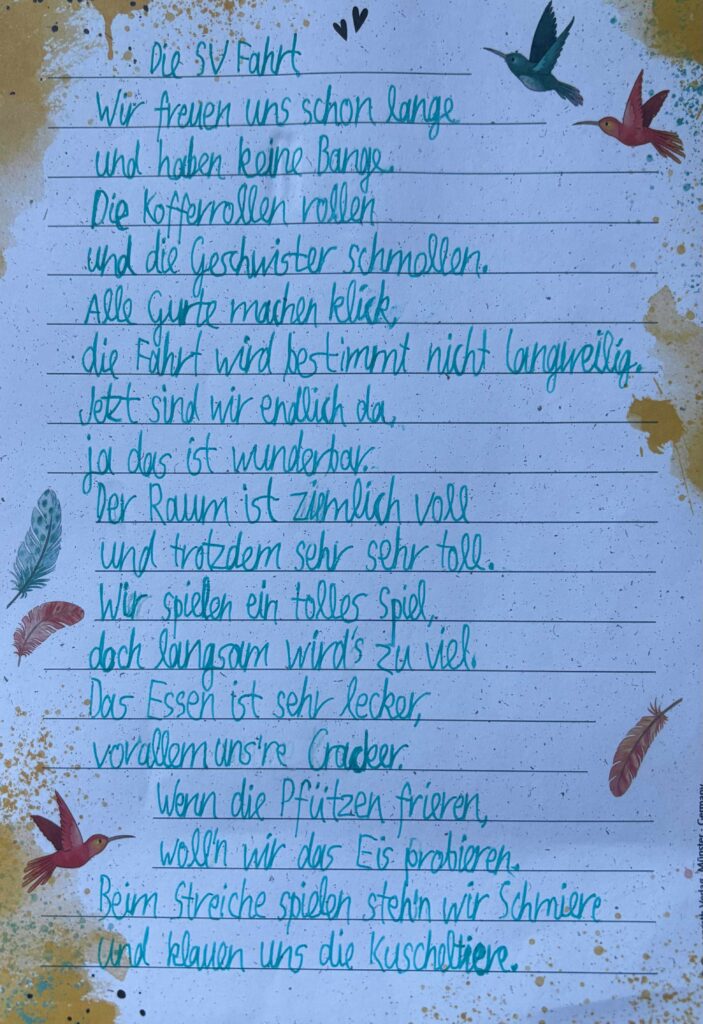 Die SV Fahrt
Wir freuen uns schon lange
und haben keine Bange.
Die Kofferrollen rollen
und die Geschwister schmollen.
Alle Gurte machen klick,
die Fahrt wird bestimmt nicht langweilig.
Jetzt sind wir endlich da,
ja das ist wunderbar.
Der Raum ist ziemlich voll
und trotzdem sehr sehr toll.
Wir spielen ein tolles Spiel,
doch langsam wird's zu viel.
Das Essen ist sehr lecker,
vorallem uns're Cracker.
Wenn die Pfützen frieren,
woll'n wir das Eis probieren.
Beim Streiche spielen steh'n wir Schmiere
und klauen uns die Kuscheltiere.
Verlag, Münster, Germany